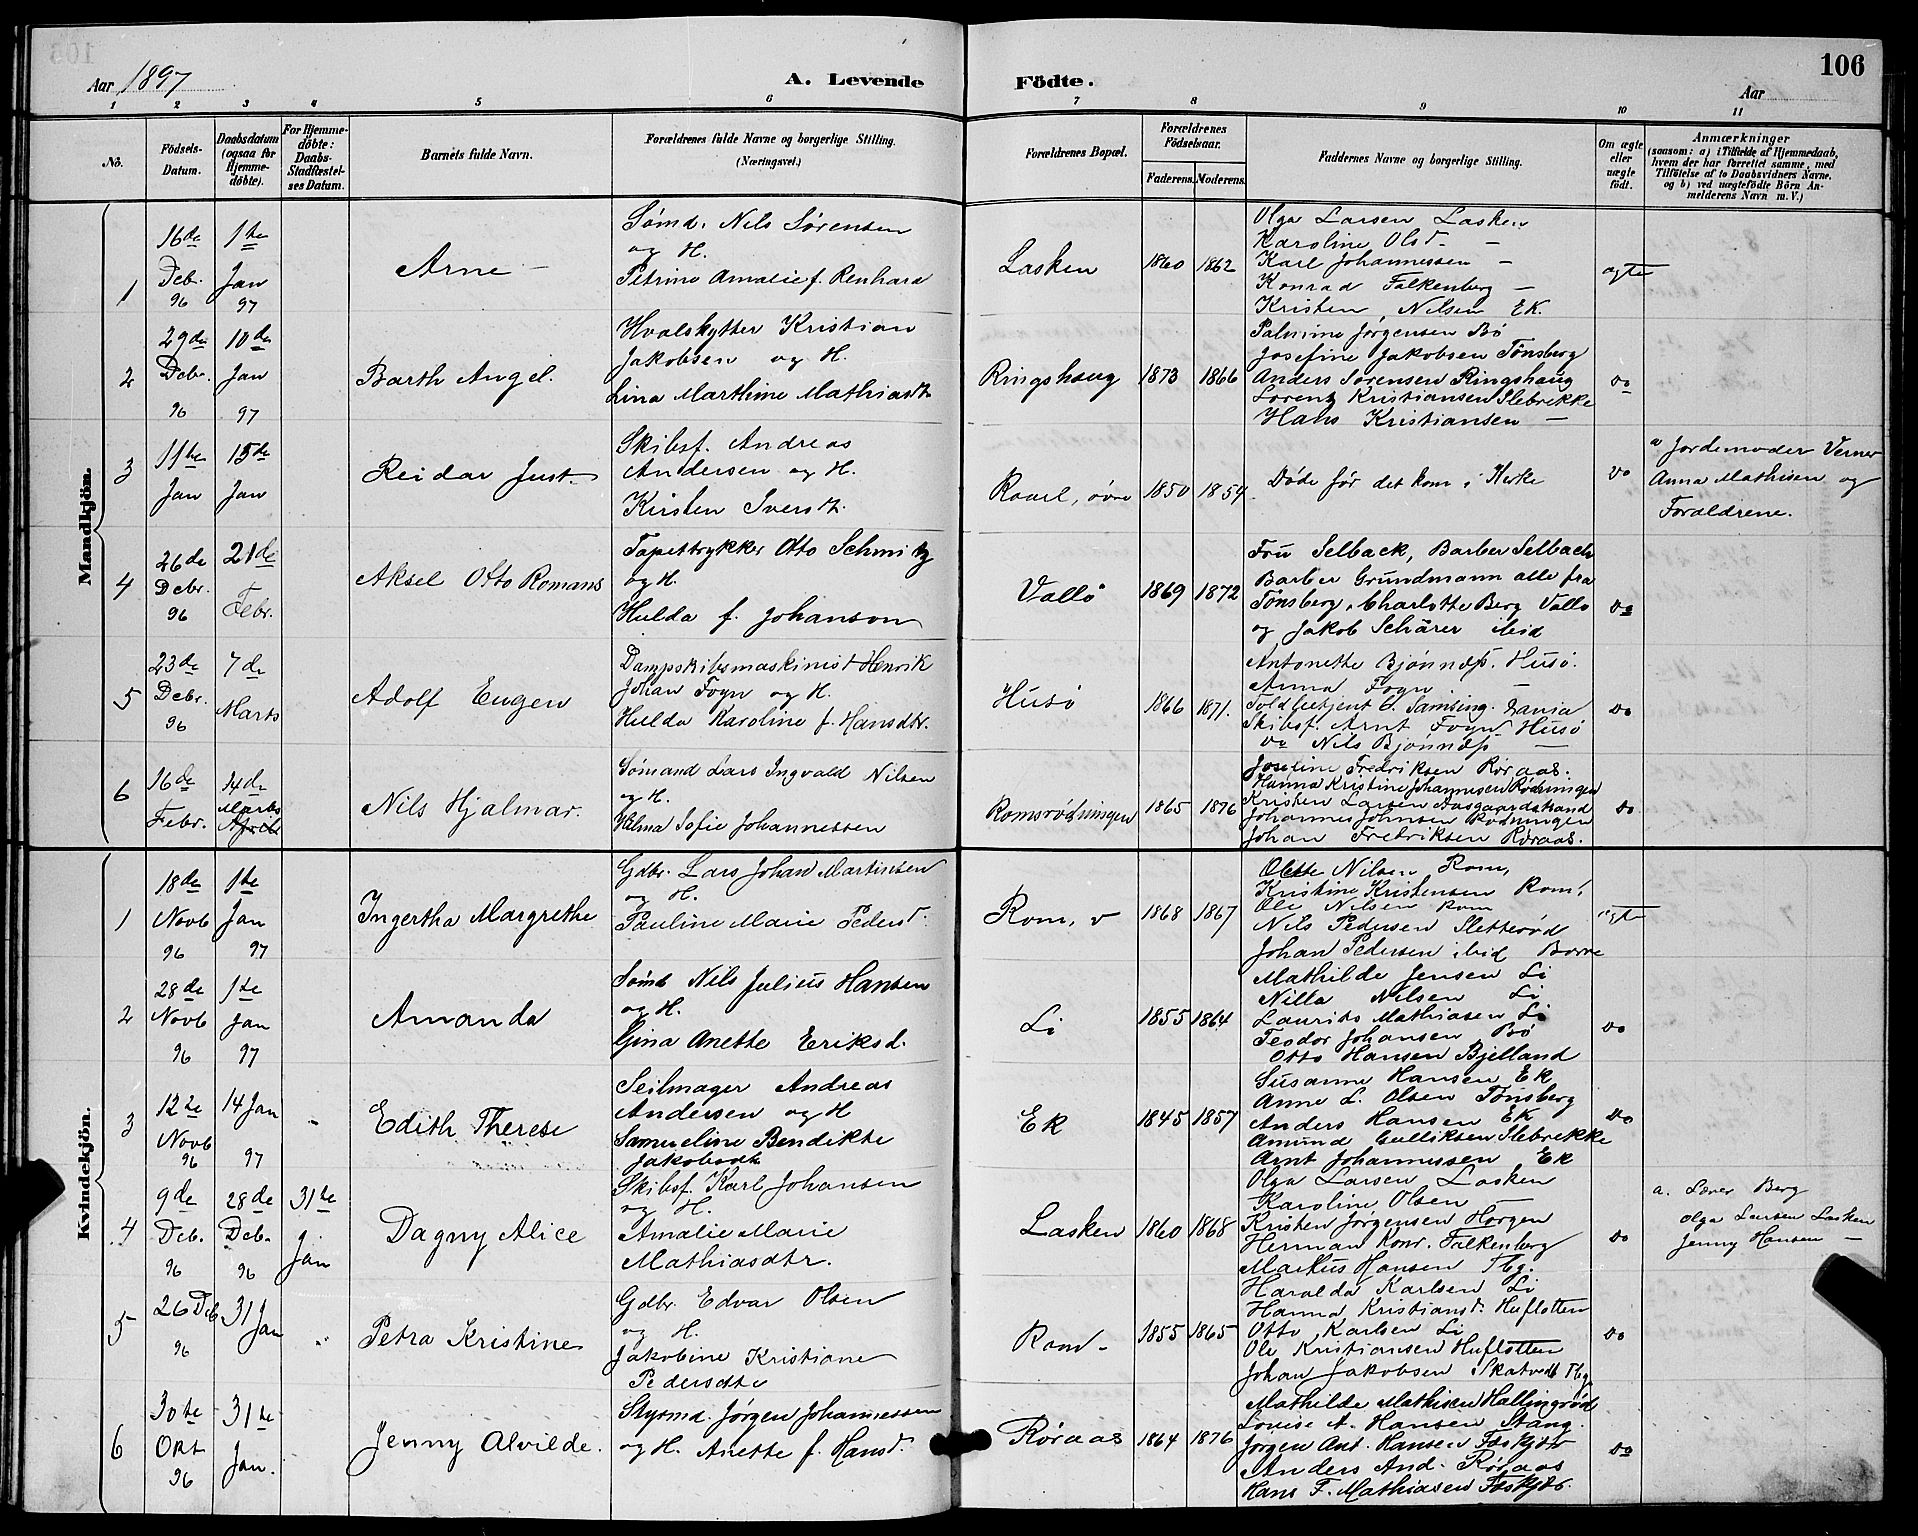 Aar 1897
A. Levende
Födte.
Aar
106
1 2 3 4 5 6 7 8 9 10 11
No.
Födsels-Datum.
Daabsdatum (ogsaa for Hjemme-döbte).
For Hjemme-döbte: Daabs-Stadfæstel-ses Datum.
Barnets fulde Navn.
Forældrenes fulde Navne og borgerlige Stilling. (Næringsvei.)
Forældrenes Bopæl.
Forældrenes Födselsaar.
Faderens. Moderens.
Faddernes Navne og borgerlige Stilling.
Om ægte eller uægte födt.
Anmærkninger
(saasom: a) i Tilfælde af Hjemmedaab, hvem der har forrettet samme, med Tilföielse af to Daabsvidners Navne, og b) ved uægtefödte Börn An-melderens Navn m. V.)
Mandkjön.
1
16de Debr. 96
1te Jan 97
Arne
Sømd. Nils Sørensen
og H.
Petrine Amalie f. Renhard
Lasken
1860 1862
Olga Larsen Lasken
Karoline Olsd. —
Karl Johannessen —
Konrad Falkenberg —
Kristen Nilsen Ek.
ægte
2
29de Debr. 96
10de Jan 97
Barth Angel.
Hvalskytter Kristian
Jakobsen og H.
Lina Marthine Mathiasdt.
Ringshaug
1873 1866
Palmine Jørgensen Bø
Josefine Jakobsen Tønsberg
Anders Sørensen Ringshaug
Lorentz Kristiansen Slebrekke
Hans Kristiansen —
do
3
11te Jan
15de Jan
Reidar Just.
Skibsf. Andreas
Andersen og H.
Kirsten Iversdt.
Raael, øvre
1850 1854.
Døde før det kom i Kirke
do
a Jordemoder Verner
Anna Mathisen og
Forældrene.
4
26de Debr. 96
21de Febr.
Aksel Otto Romans
Tapettrykker Otto Schmitz
og H.
Hulda f. Johanson
Vallö
1869 1872
Fru Selback, Barber Selbach
Barber Grundmann alle fra
Tønsberg, Charlotte Berg Vallö
og Jakob Schärer ibid
do
5
23de Debr. 96
7de Marts
Adolf Eugen
Dampskibsmaskinist Henrik
Johan Foyn og H.
Hulda Karoline f. Hansdtr.
Husø
1866 1871.
Antonette Bjønnæss. Husö.
Anna Foyn —
Toldbetjent Samsing.
Skibsf. Arnt Foyn Husö
do Nils Bjønnæss —
do
6
16de Febr.
14de Marts April
Nils Hjalmar.
Sømand Lars Ingvald Nilsen
og H.
Hilma Sofie Johannessen
Romsrødningen
1865 1876
Josefine Fredriksen Røraas.
Hanna Kristine Johannesen Rødningen
Kristen Larsen Aasgaardstrand
Johannes Johnsen Rødningen
Johan Fredriksen Røraas.
do
Kvindekjön.
1
18de Novb 96
1te Jan 97
Ingertha Margrethe
Gdbr. Lars Johan Martinsen
og H.
Pauline Marie Pedersd.
Rom, v
1868 1867
Olette Nilsen Rom,
Kristine Kristensen Rom,
Ole Nilsen Rom
Nils Pedersen Sletterød
Johan Pedersen ibid Borre
ægte
2
28de Novb 96
1te Jan 97
Amanda
Sømd Nils Julius Hansen
og H.
Gina Anette Eriksd.
Li
1855 1864
Mathilde Jensen Li
Nilla Nilsen Li
Laurits Mathiasen Li
Teodor Johansen Bø
Otto Hansen Bjelland
do
3
12te Novb 96
14 Jan 97
Edith Therese
Seilmager Andreas
Andersen og H
Samueline Bendikte
Jakobsdt.
Ek
1845 1857
Susanne Hansen Ek
Anne L. Olsen Tønsberg
Anders Hansen Ek
Amund Culliksen Slebrekke
Arnt Johannessen Ek
do
4
9de Deb. 96
28de Deb. 96
31te Jan
Dagny Alice
Skibsf. Karl Johansen
og H.
Amalie Marie
Mathiasdtr.
Lasken
1860 1868
Olga Larsen Lasken
Karoline Olsen —
Kristen Jørgensen Horgen
Herman Konr. Falkenberg
Markus Hansen Tbg.
do
a. Lærer Berg
Olga Larsen Lasken
Jenny Hansen —
5
26 Deb 96
31 Jan
Petra Kristine
Gdbr. Edvar Olsen
og H.
Jakobine Kristiane
Pedersdtr
Rom
1855 1865
Haralda Karlsen Li
Hanna Kristiansd. Hufløtten
Otto Karlsen Li
Ole Kristiansen Hufløtten
Johan Jakobsen Skatvedt Tbg.
do
6
30te Okt 96
31te Jan.
Jenny Alvilde.
Styrmd. Jørgen Johannessen
og H. Anette f. Hansd.
Røraas
1864 1876
Mathilde Mathisen Hallingrød
Louise A. Hansen Stang
Jørgen Ant. Hansen Føskjær
Anders And. Røraas
Hans F. Mathiasen Føskjær.
do